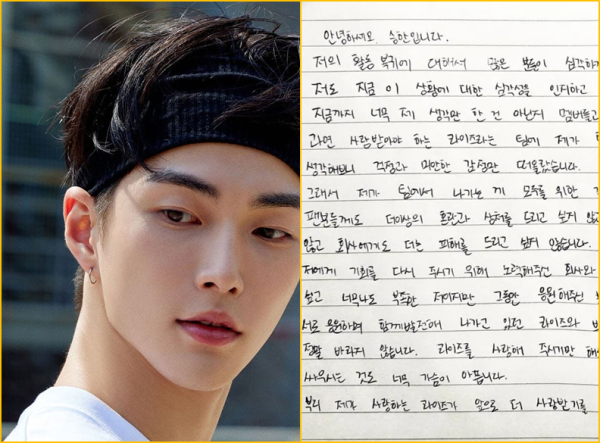 안녕하세요 승한입니다.
저의 활동 복귀에 대해서 많은 분들이 심각하게
저도 지금 이 상황에 대한 심각성을 인지하고
지금까지 너무 제 생각만 한 건 아닌지 멤버들과
과연 사랑받아야 하는 라이즈라는 팀에 제가
생각해보니 걱정과 미안한 감정만 떠올랐습니다.
그래서 제가 팀에서 나가는 게 모두를 위한
팬분들께도 더이상의 혼란과 상처를 드리고 싶지 않
않고 회사에게도 더는 피해를 드리고 싶지 않습니다.
저에게 기회를 다시 주시기 위해 노력해주신 회사와
싶고 너무나도 부족한 저이지만 그동안 응원해주신
서로 응원하며 함께 발전해 나가고 있던 라이즈와
정말 바라지 않습니다. 라이즈를 사랑해 주시기만 해
싸우시는 것도 너무 가슴이 아픕니다.
부디 제가 사랑하는 라이즈가 앞으로 더 사랑받기를